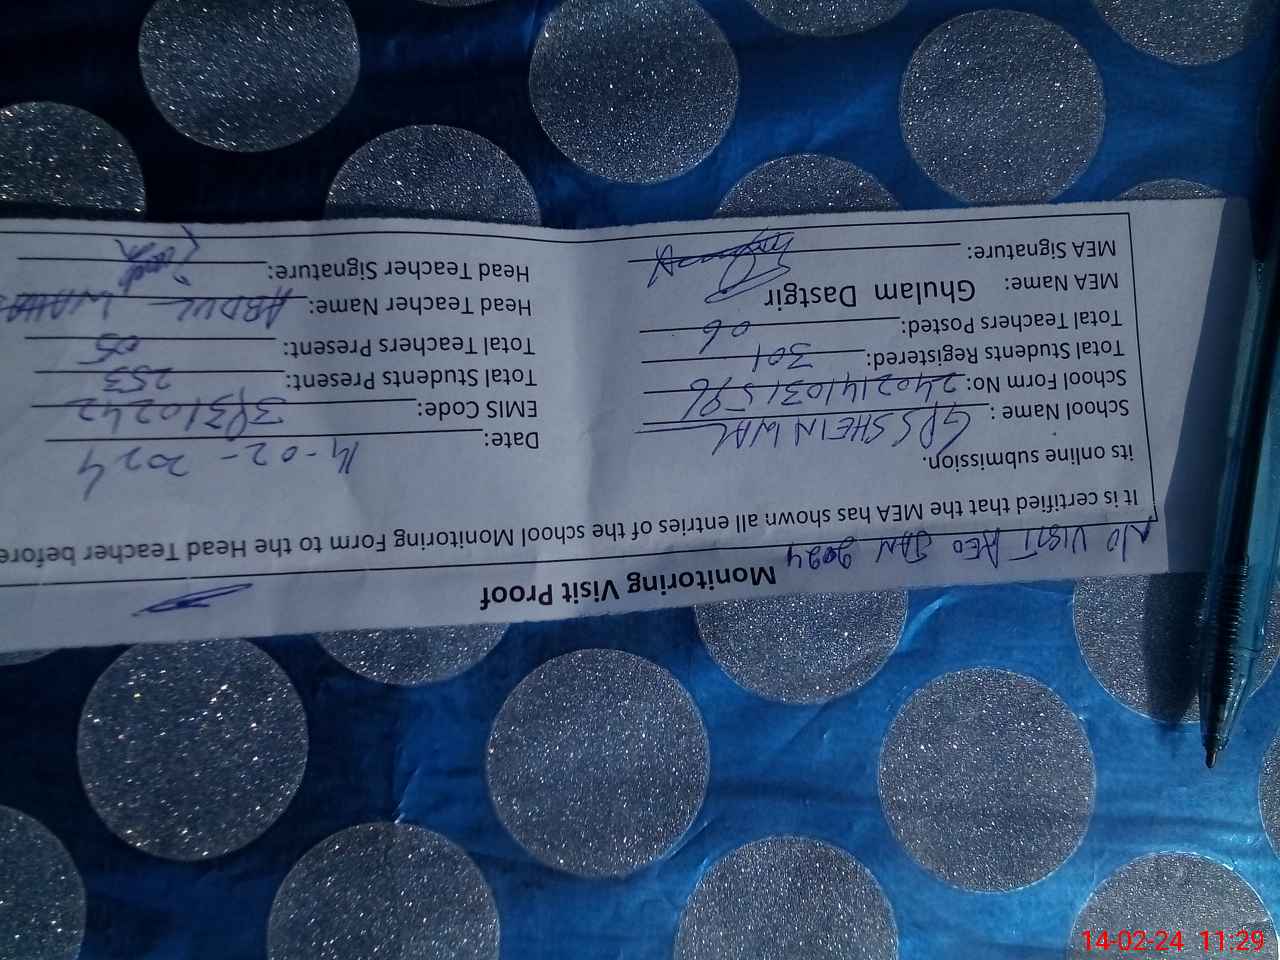 Monitoring Visit Proof
NO VISIT AEO JAN 2024
It is certified that the MEA has shown all entries of the school Monitoring Form to the Head Teacher before
its online submission.
Date: 14-02-2024
School Name : GPS SHEIN WAL
EMIS Code: 38310242
School Form No: 2402141031596
Total Students Present: 253
Total Students Registered: 301
Total Teachers Present: 05
Total Teachers Posted: 06
Head Teacher Name: ABDUL WAHAB
MEA Name: Ghulam Dastgir
Head Teacher Signature:
MEA Signature:
14-02-24 11:29